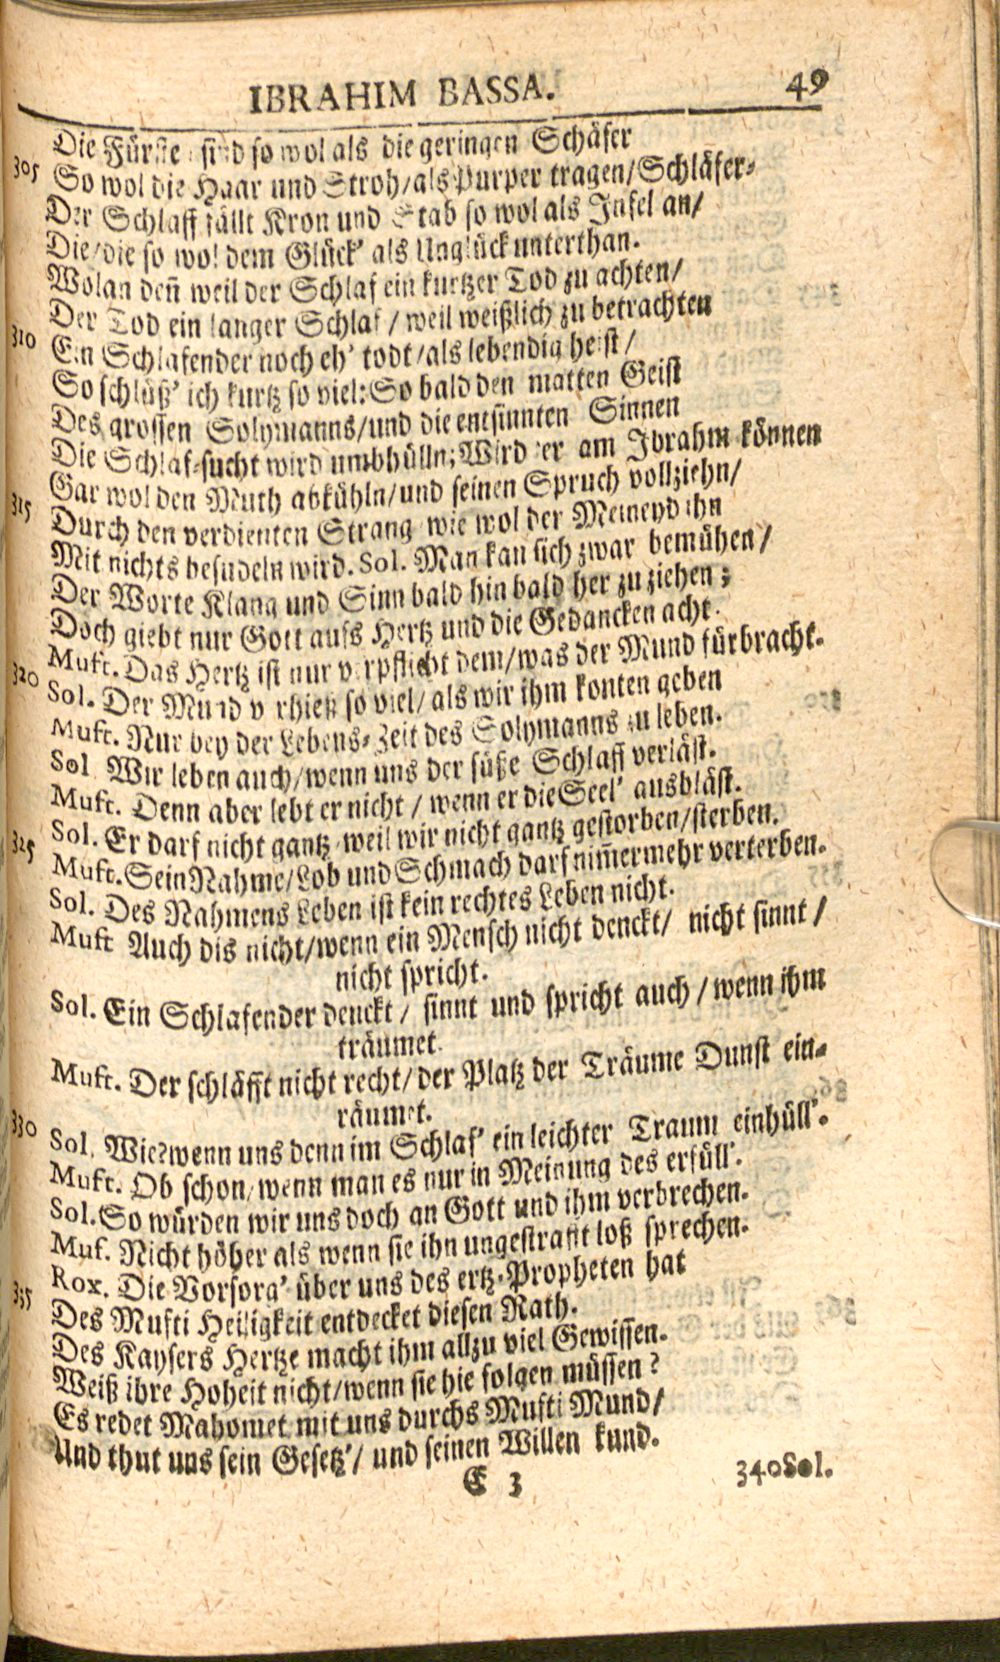 IBRAHIM BASSA. 49
Die Fürsten sind so wol als die geringen Schäfer
305 So wol die Haar und Stroh/als Purper tragen/Schläfer-
Der Schlaff fällt Kron und Stab so wol als Insel an/
Die/die so wol dem Glück' als Unglück unterthan.
Wolan den̄ weil der Schlaf ein kurtzer Tod zu achten/
Der Tod ein langer Schlaf / weil weißlich zu betrachten
310 Ein Schlafender noch eh' todt/als lebendig heist/
So schlüß' ich kurtz so viel: So bald den matten Geist
Des grossen Solymanns/und die entsinnten Sinnen
Die Schlaf-sucht wird umbhülln; Wird er am Ibrahm können
Gar wol den Muth abkühln/und seinen Spruch vollziehn/
315 Durch den verdienten Strang wie wol der Meineyd ihn
Mit nichts besudeln wird. Sol. Man kan sich zwar bemühen/
Der Worte Klang und Sinn bald hin bald her zu ziehen;
Doch giebt nur Gott aufs Hertz und die Gedancken acht.
Muft. Das Hertz ist nur verpflicht dem/was der Mund fürbracht.
320 Sol. Der Mund verhieß so viel/als wir ihm konten geben
Muft. Nur bey der Lebens-Zeit des Solymanns zu leben.
Sol Wir leben auch/wenn uns der süße Schlaff verläst.
Muft. Denn aber lebt er nicht / wenn er die Seel' ausbläst.
Sol. Er darf nicht gantz weil wir nicht gantz gestorben/sterben.
325 Muft. Sein Nahme/Lob und Schmach darf nim̄ermehr verterben.
Sol. Des Nahmens Leben ist kein rechtes Leben nicht.
Muft Auch dis nicht/wenn ein Mensch nicht denckt/ nicht sinnt /
nicht spricht.
Sol. Ein Schlafender denckt / sinnt und spricht auch / wenn ihm
träumet.
Muft. Der schläfft nicht recht/der Platz der Träume Dunst ein-
räumet.
330 Sol. Wie?wenn uns denn im Schlaf' ein leichter Traum einhüll'.
Muft. Ob schon/wenn man es nur in Meinung des erfüll'.
Sol. So würden wir uns doch an Gott und ihm verbrechen.
Muf. Nicht höher als wenn sie ihn ungestrafft loß sprechen.
Rox. Die Vorsorg' über uns des ertz-Propheten hat
335 Des Mufti Heiligkeit entdecket diesen Rath.
Des Kaysers Hertze macht ihm allzu viel Gewissen.
Weiß ihre Hoheit nicht/wenn sie hie folgen müssen?
Es redet Mahomet mit uns durchs Mufti Mund/
Und thut uns sein Gesetz'/ und seinen Willen kund.
E 3 340Sol.